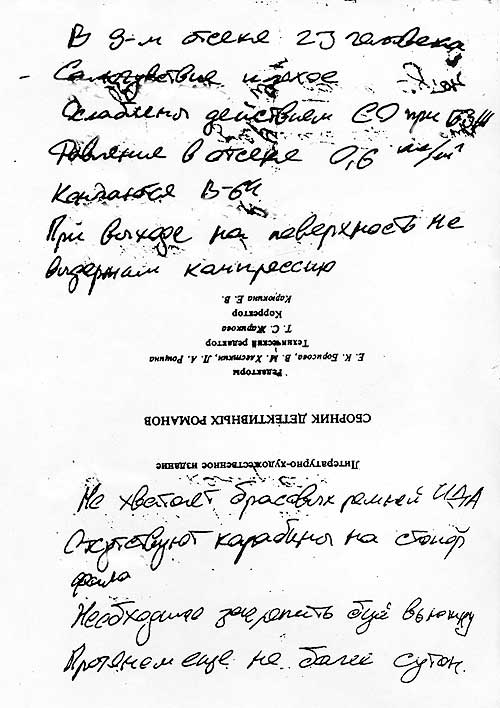 В 9-м отсеке 23 человека
Самочувствие плохое
Ослаблены действием СО при БЗЖ
Давление в отсеке 0,6 кг/см²
Кончаются В-64
При выходе на поверхность не
выдержим компрессию
Карюкина Е. В.
Корректор
Т. С. Жарикова
Технический редактор
Е. К. Борисова, В. М. Хлесткин, Л. А. Рощина
Редакторы
СБОРНИК ДЕТЕКТИВНЫХ РОМАНОВ
Литературно-художественное издание
Не хватает брасовых ремней ИДА
Отсутствуют карабины на стопор
фала
Необходимо закрепить буй вьюшку
Протянем еще не более суток.